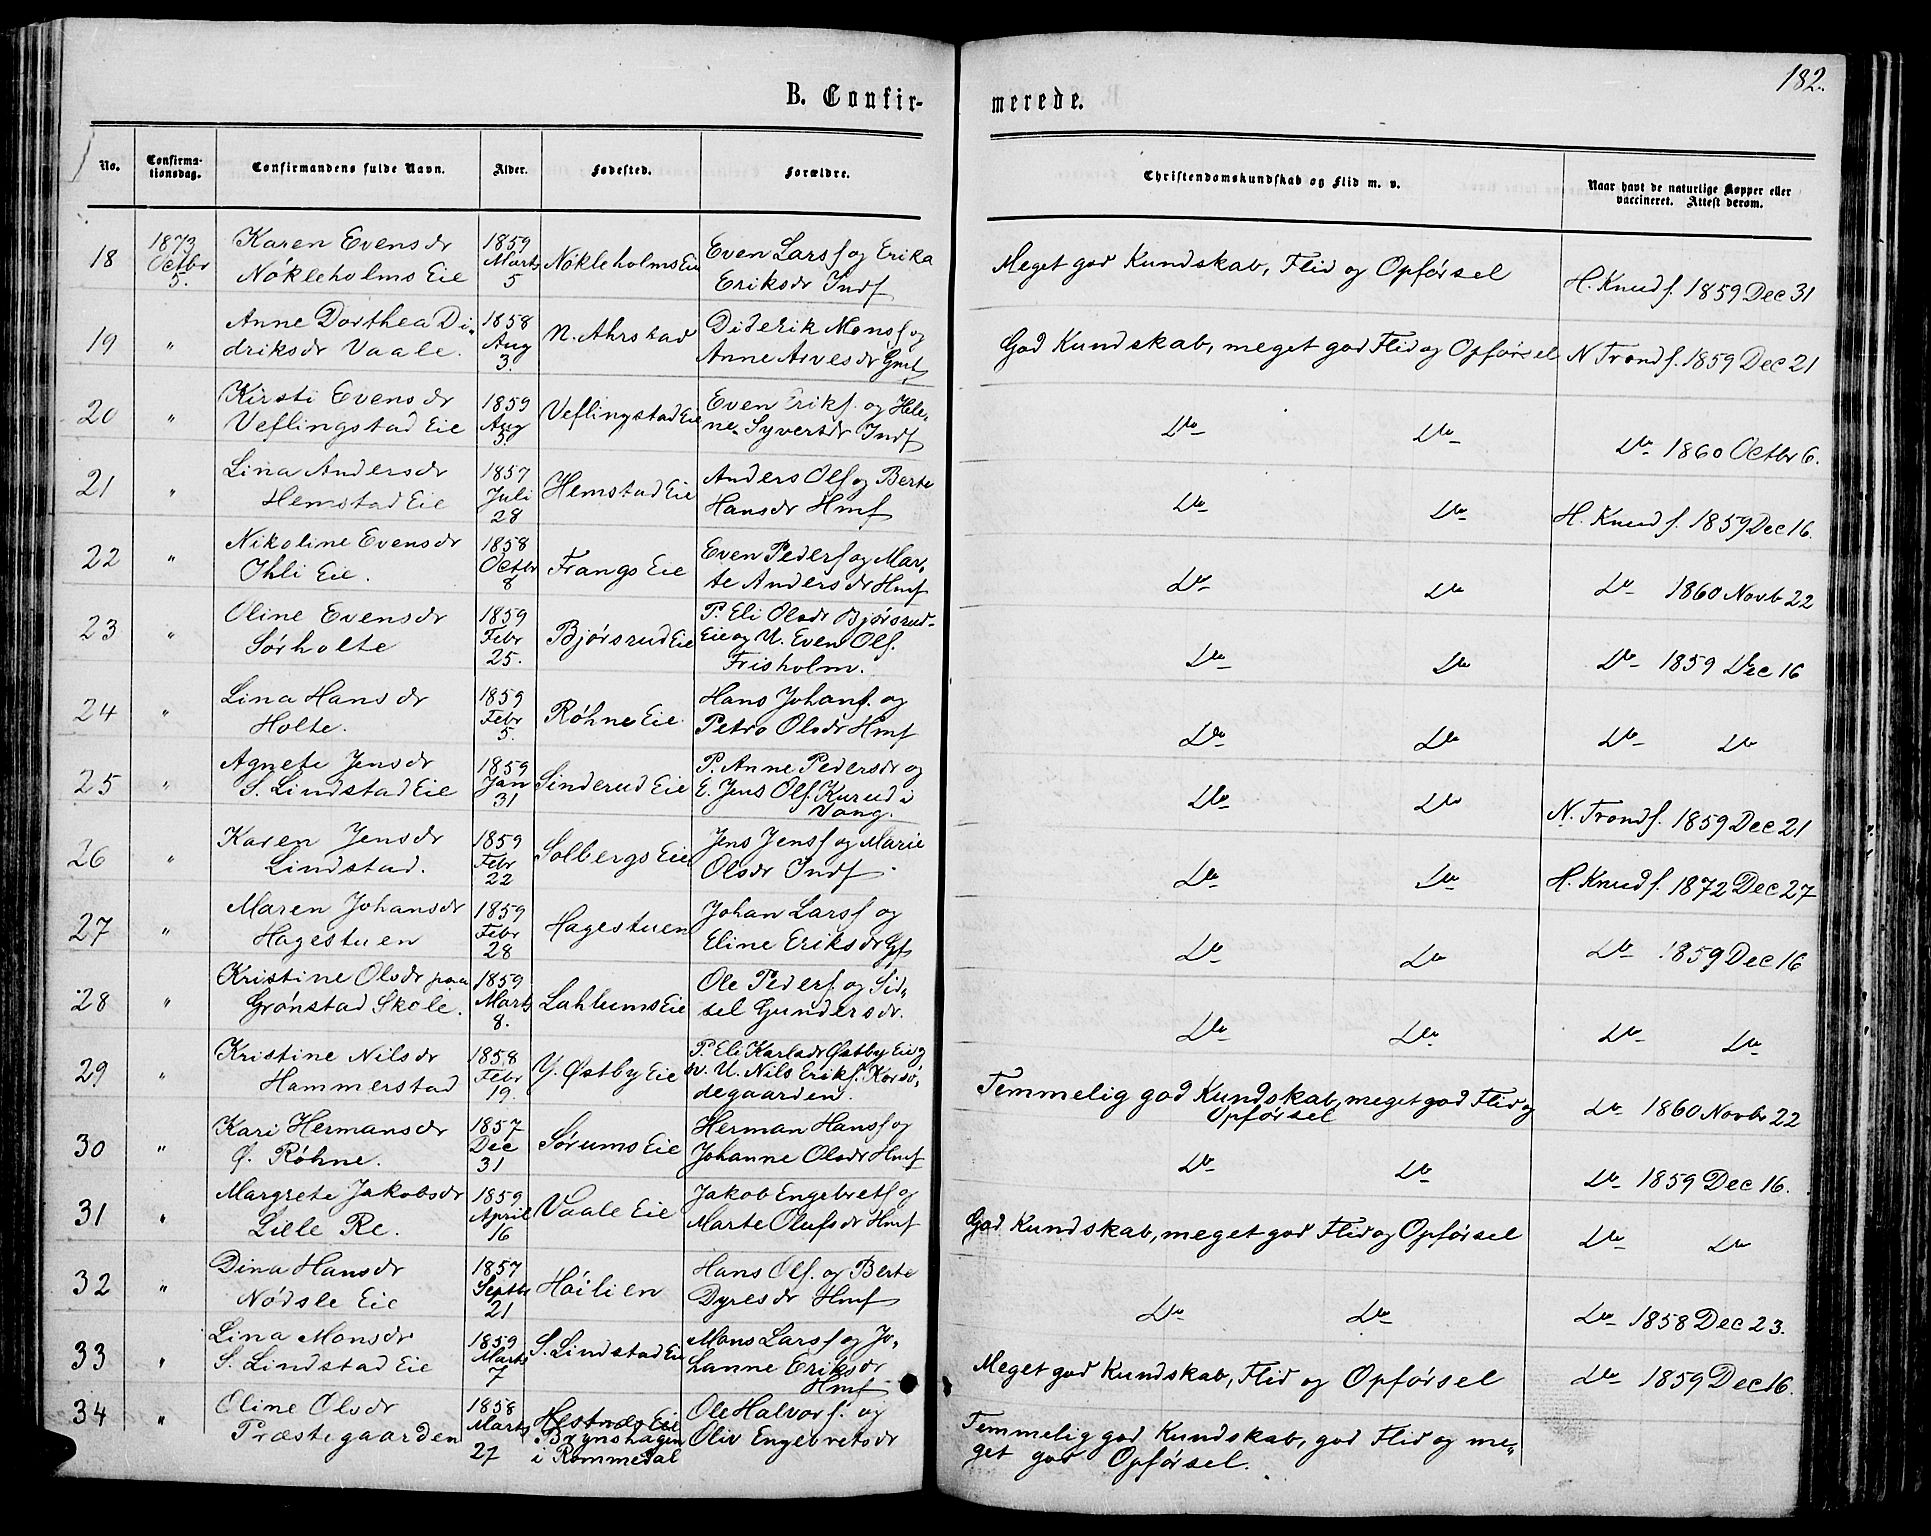 182.
B. Confirmerede.
No. | Confirmationsdag. | Confirmandens fulde Navn. | Alder. | Fødested. | Forældre. | Christendomskundskab og Flid m. v. | Naar havt de naturlige Kopper eller vaccineret. Attest derom.
18 | 1873 Octbr 5. | Karen Evensdr Nökleholms Eie | 1859 Marts 5 | Nökleholms Eie | Even Larsf og Erika Eriksdr Indf | Meget god Kundskab, Flid og Opförsel | H. Knudf. 1859 Dec 31
19 | " | Anne Dorthea Didriksdr Vaale. | 1858 Aug 3. | N. Ahrstad | Diderik Monsf og Anne Arvesdr Gmf | God Kundskab, meget god Flid og Opförsel | N Trondf. 1859 Dec 21
20 | " | Kirsti Evensdr Veflingstad Eie | 1859 Aug 3. | Veflingstad Eie | Even Erikf. og Helene Syvertdr Indf | Do Do | Do 1860 Octbr 6.
21 | " | Lina Andersdr Hemstad Eie | 1857 Juli 28 | Hemstad Eie | Anders Olf og Berte Hansdr Hmf | Do Do | H. Knudf. 1859 Dec 16.
22 | " | Nikoline Evensdr Ihli Eie. | 1858 Octbr 8 | Frangs Eie | Even Pederf og Marte Andersdr Hmf | Do Do | Do 1860 Novb 22
23 | " | Oline Evensdr Sörholte | 1859 Febr 25. | Bjórsrud Eie | P. Eli Olsdr Bjórsrud-Eie og U. Even Olf. Frisholm. | Do Do | Do 1859 Dec 16
24 | " | Lina Hansdr Holte. | 1859 Febr 5. | Röhne Eie | Hans Johanf. og Petro Olsdr Hmf | Do Do | Do Do
25 | " | Agnete Jensdr S. Lindstad Eie | 1859 Jan 31 | Sinderud Eie | P. Anne Pedersdr og E. Jens Olf. Kurud i Vang. | Do Do | N. Trondf. 1859 Dec 21
26 | " | Karen Jensdr Lindstad. | 1859 Febr 22 | Solbergs Eie | Jens Jensf og Marie Olsdr Indf | Do Do | H. Knudf. 1872 Dec 27
27 | " | Maren Johansdr Hagestuen | 1859 Febr 28 | Hagestuen | Johan Larsf og Eline Eriksdr Gf | Do Do | Do 1859 Dec 16
28 | " | Kristine Olsdr paa Grónstad Skole. | 1859 Marts 8. | Lahlums Eie | Ole Pederf. og Sidsel Gundersdr. | Do Do | Do Do
29 | " | Kristine Nilsdr Hammerstad | 1858 Febr 19. | Y. Østby Eie | P. Eli Karlsdr Østby Eie og U. Nils Erikf. Korsódegaarden. | Temmelig god Kundskab, meget god Flid og Opförsel | Do 1860 Novbr 22
30 | " | Kari Hermansdr Ø. Röhne. | 1857 Dec 31 | Sórums Eie | Herman Hansf og Johanne Olsdr Hmf | Do Do | Do 1859 Dec 16.
31 | " | Margrete Jakobsdr Lille Re. | 1859 April 16 | Vaale Eie | Jakob Engebretf og Marte Olufsdr Hmf | God Kundskab, meget god Flid og Opförsel | Do Do
32 | " | Dina Hansdr Nódsle Eie | 1857 Septbr 21 | Hóilien | Hans Olf. og Berte Dyresdr Hmf | Do Do | Do 1858 Dec 23.
33 | " | Lina Monsdr S. Lindstad Eie | 1859 Marts 7 | S. Lindstad Eie | Mons Larsf og Johanne Eriksdr Hmf | Meget god Kundskab, Flid og Opförsel | Do 1859 Dec 16.
34 | " | Oline Olsdr Præstegaarden | 1858 Marts 27 | Hestnæs Eie Brynshagen i Rommedal | Ole Halvorf. og Oliv Engebretsdr | Temmelig god Kundskab, god Flid og meget god Opförsel.